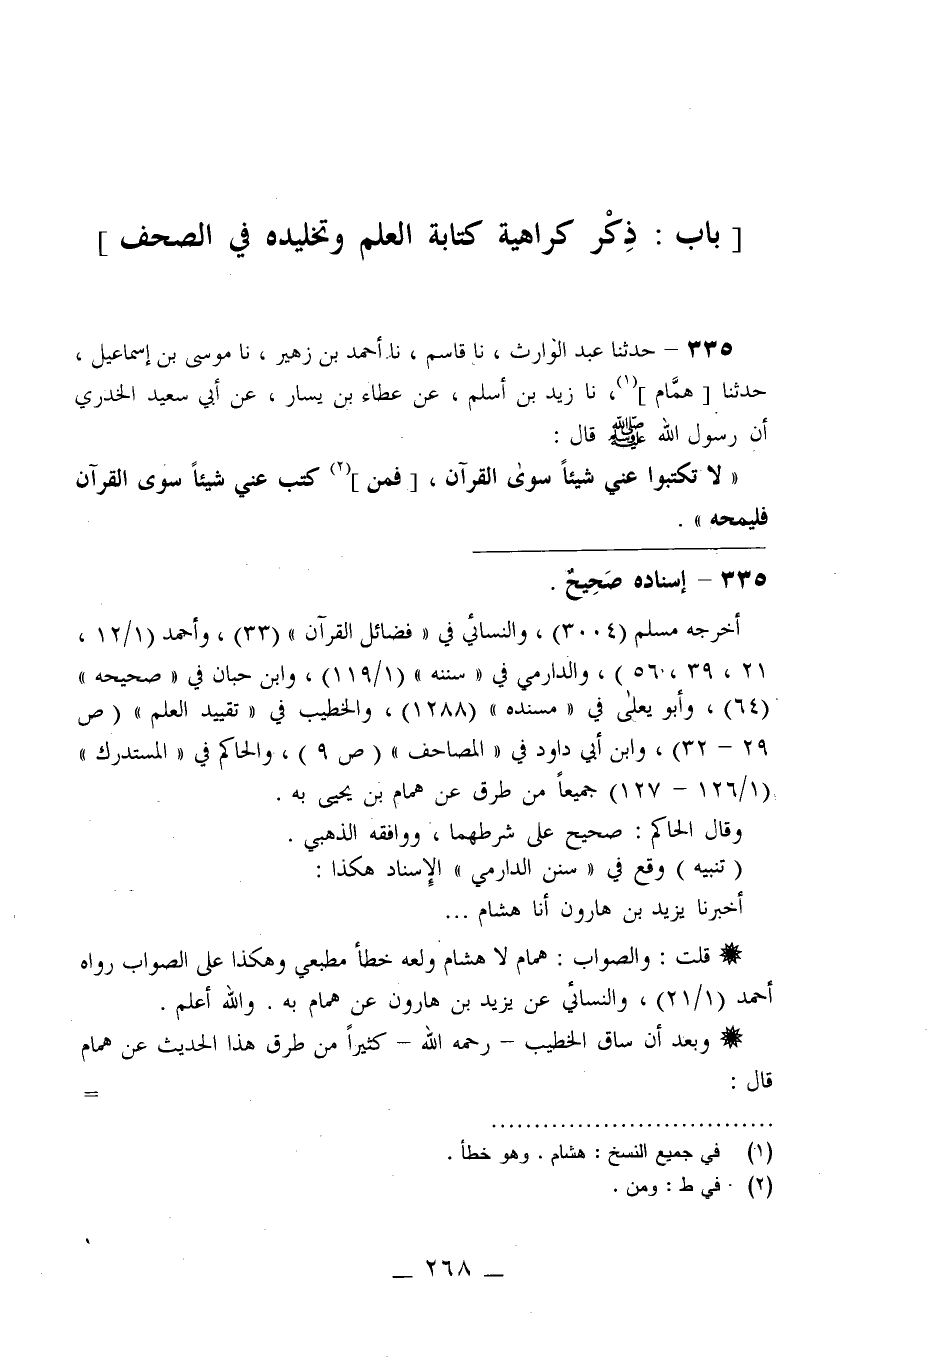 [ باب : ذِكْر كراهية كتابة العلم وتخليده في الصحف ]
٣٣٥ – حدثنا عبد الوارث ، نا قاسم ، نا أحمد بن زهير ، نا موسى بن إسماعيل ،
حدثنا [ همَّام ](١)، نا زيد بن أسلم ، عن عطاء بن يسار ، عن أبي سعيد الخدري
أن رسول الله ﷺ قال :
« لا تكتبوا عني شيئاً سوىٰ القرآن ، [ فمن ](٢) كتب عني شيئاً سوى القرآن
فليمحه » .
٣٣٥ – إسناده صَحِيحٌ .
أخرجه مسلم (٣٠٠٤) ، والنسائي في « فضائل القرآن » (٣٣) ، وأحمد (١٢/١ ،
٢١ ، ٣٩ ، ٥٦ ) ، والدارمي في « سننه » (١١٩/١) ، وابن حبان في « صحيحه »
(٦٤) ، وأبو يعلىٰ في « مسنده » (١٢٨٨) ، والخطيب في « تقييد العلم » ( ص
٢٩ – ٣٢) ، وابن أبي داود في « المصاحف » ( ص ٩ ) ، والحاكم في « المستدرك »
(١٢٦/١ – ١٢٧) جميعاً من طرق عن همام بن يحيى به .
وقال الحاكم : صحيح على شرطهما ، ووافقه الذهبي .
( تنبيه ) وقع في « سنن الدارمي » الإِسناد هكذا :
أخبرنا يزيد بن هارون أنا هشام ...
✸ قلت : والصواب : همام لا هشام ولعه خطأ مطبعي وهكذا على الصواب رواه
أحمد (٢١/١) ، والنسائي عن يزيد بن هارون عن همام به . والله أعلم .
✸ وبعد أن ساق الخطيب – رحمه الله – كثيراً من طرق هذا الحديث عن همام
قال : =
(١) في جميع النسخ : هشام . وهو خطأ .
(٢) في ط : ومن .
– ٢٦٨ –